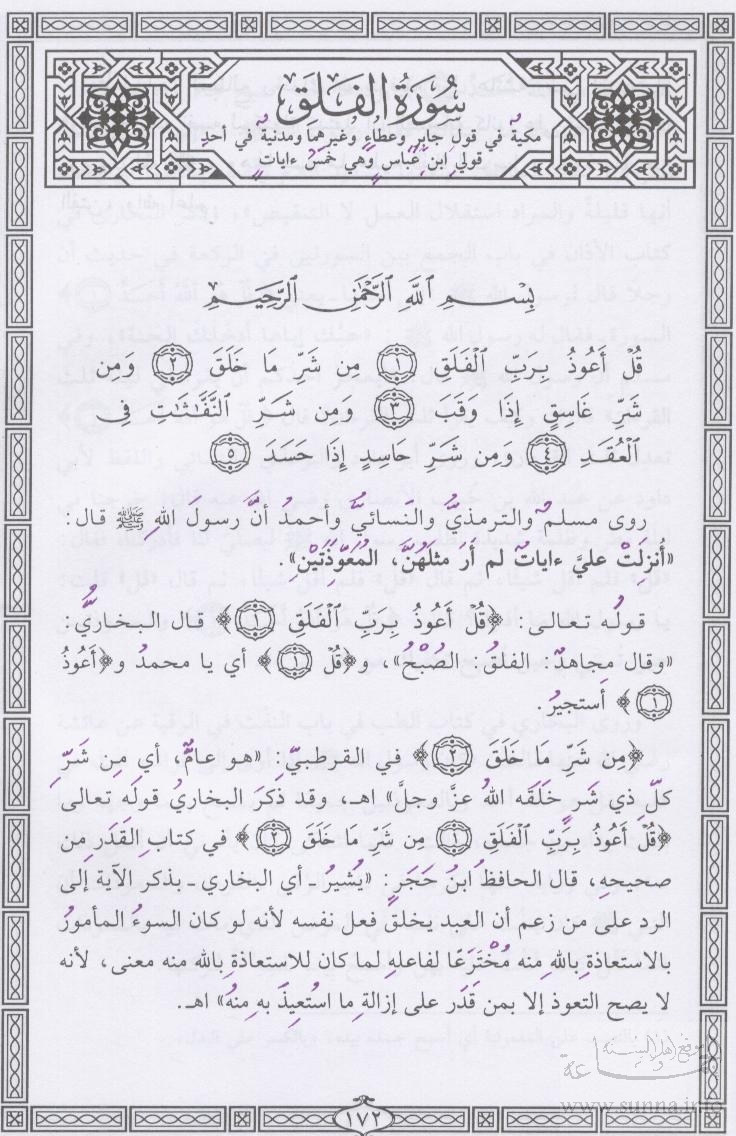 سُورَةُ الْفَلَقِ
مكية في قول جابر وعطاء وغيرهما ومدنية في أحد
قولي ابن عباس وهي خمس ءايات
بِسْمِ اللَّهِ الرَّحْمَٰنِ الرَّحِيمِ
قُلْ أَعُوذُ بِرَبِّ الْفَلَقِ ﴿١﴾ مِن شَرِّ مَا خَلَقَ ﴿٢﴾ وَمِن
شَرِّ غَاسِقٍ إِذَا وَقَبَ ﴿٣﴾ وَمِن شَرِّ النَّفَّاثَاتِ فِى
الْعُقَدِ ﴿٤﴾ وَمِن شَرِّ حَاسِدٍ إِذَا حَسَدَ ﴿٥﴾
روى مسلمٌ والترمذيُّ والنسائيُّ وأحمدُ أنَّ رسولَ اللهِ ﷺ قال:
«أنزلتْ عليَّ ءاياتٌ لم أرَ مثلَهُنَّ، المعَوِّذَتَيْنِ».
قولُه تعالى: ﴿قُلْ أَعُوذُ بِرَبِّ الْفَلَقِ (١)﴾ قال البخاريُّ:
«وقال مجاهدٌ: الفلقُ: الصُّبْحُ»، و﴿قُلْ (١)﴾ أي يا محمدُ و﴿أَعُوذُ
(١)﴾ أستجيرُ.
﴿مِن شَرِّ مَا خَلَقَ (٢)﴾ في القرطبيّ: «هو عامٌّ، أي مِن شَرِّ
كلِّ ذي شرٍّ خَلَقَه اللهُ عزَّ وجلَّ» اهـ، وقد ذكرَ البخاريُّ قولَه تعالى
﴿قُلْ أَعُوذُ بِرَبِّ الْفَلَقِ (١) مِن شَرِّ ما خَلَقَ (٢)﴾ في كتابِ القَدَرِ مِن
صحيحِهِ، قال الحافظُ ابنُ حَجَرٍ: «يُشيرُ - أي البخاري - بذكر الآية إلى
الرد على من زعم أن العبد يخلق فعل نفسه لأنه لو كان السوءُ المأمورُ
بالاستعاذةِ باللهِ منه مُخْتَرَعًا لفاعلِهِ لما كان للاستعاذةِ باللهِ منه معنى، لأنه
لا يصح التعوذ إلا بمن قَدَر على إزالةِ ما استُعيذَ بهِ منهُ» اهـ.
www.sunna.info
١٧٢